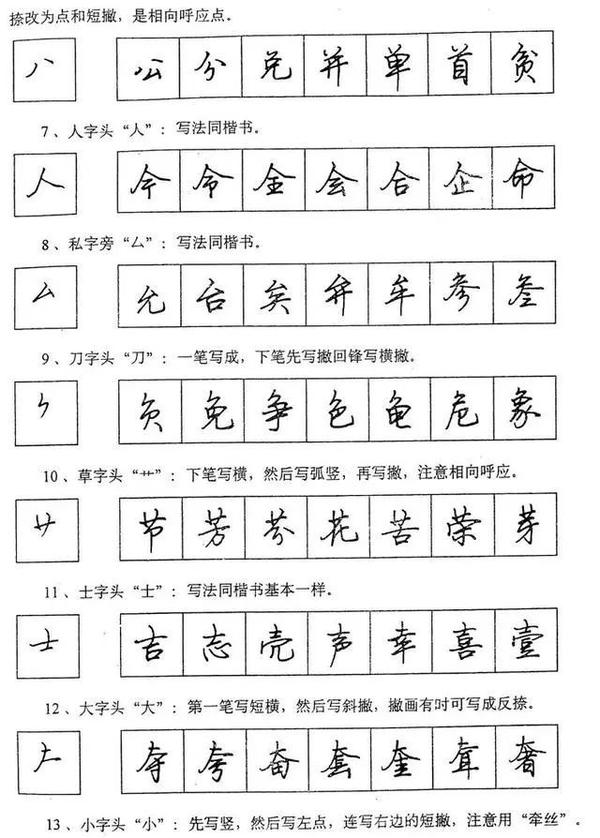 捺改为点和短撇，是相向呼应点。
八 公 分 兑 并 单 首 贫
7、人字头“人”：写法同楷书。
人 今 令 全 会 合 企 命
8、私字旁“厶”：写法同楷书。
厶 允 台 矣 弁 牟 参 叁
9、刀字头“刀”：一笔写成，下笔先写撇回锋写横撇。
⺈ 负 免 争 色 龟 危 象
10、草字头“艹”：下笔写横，然后写弧竖，再写撇，注意相向呼应。
艹 节 芳 芬 花 苦 荣 芽
11、士字头“士”：写法同楷书基本一样。
士 吉 志 壳 声 幸 喜 壹
12、大字头“大”：第一笔写短横，然后写斜撇，撇画有时可写成反捺。
大 夺 夸 奋 套 奎 耷 奢
13、小字头“小”：先写竖，然后写左点，连写右边的短撇，注意用“牵丝”。